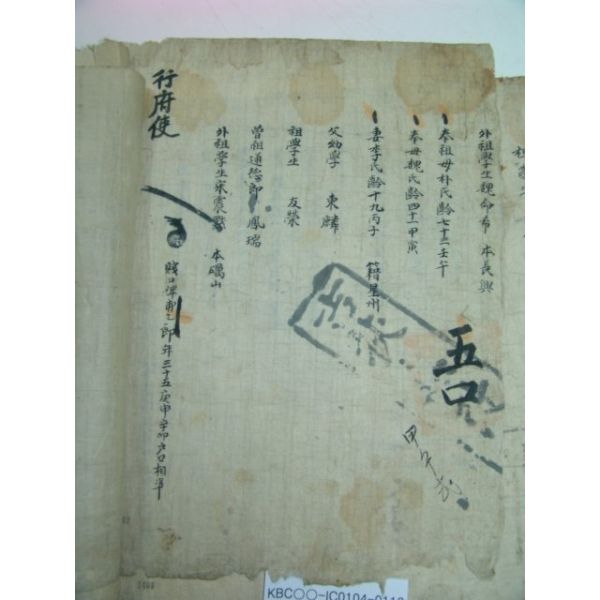 外祖學生魏命希 本長興
奉祖母朴氏齡七十二壬午
奉母魏氏齡四十一甲寅
妻李氏齡十九丙子 籍星州
父幼學 東麟
祖學生 友榮
曾祖通德郎 鳳瑞
外祖學生宋震 本礪山
賤口婢 郎年三十五庚申辛卯戶口相準
行府使
五口
甲午
KBC○○-IC0104-0113